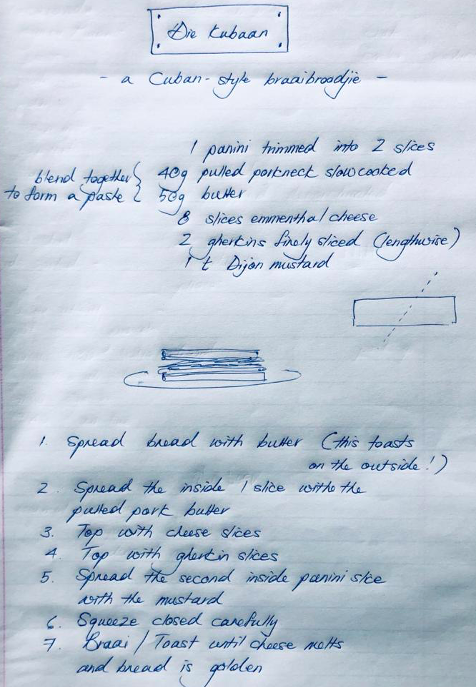 Die Kubaan
- a Cuban-style braaibroodjie -
1 panini trimmed into 2 slices
blend together { 40g pulled porkneck slowcooked
to form a paste { 50g butter
8 slices emmenthal cheese
2 gherkins finely sliced (lengthwise)
1 t Dijon mustard
1. Spread bread with butter (this toasts
on the outside!)
2. Spread the inside 1 slice withe the
pulled pork butter
3. Top with cheese slices
4. Top with gherkin slices
5. Spread the second inside panini slice
with the mustard
6. Squeeze closed carefully
7. Braai / Toast until cheese melts
and bread is golden